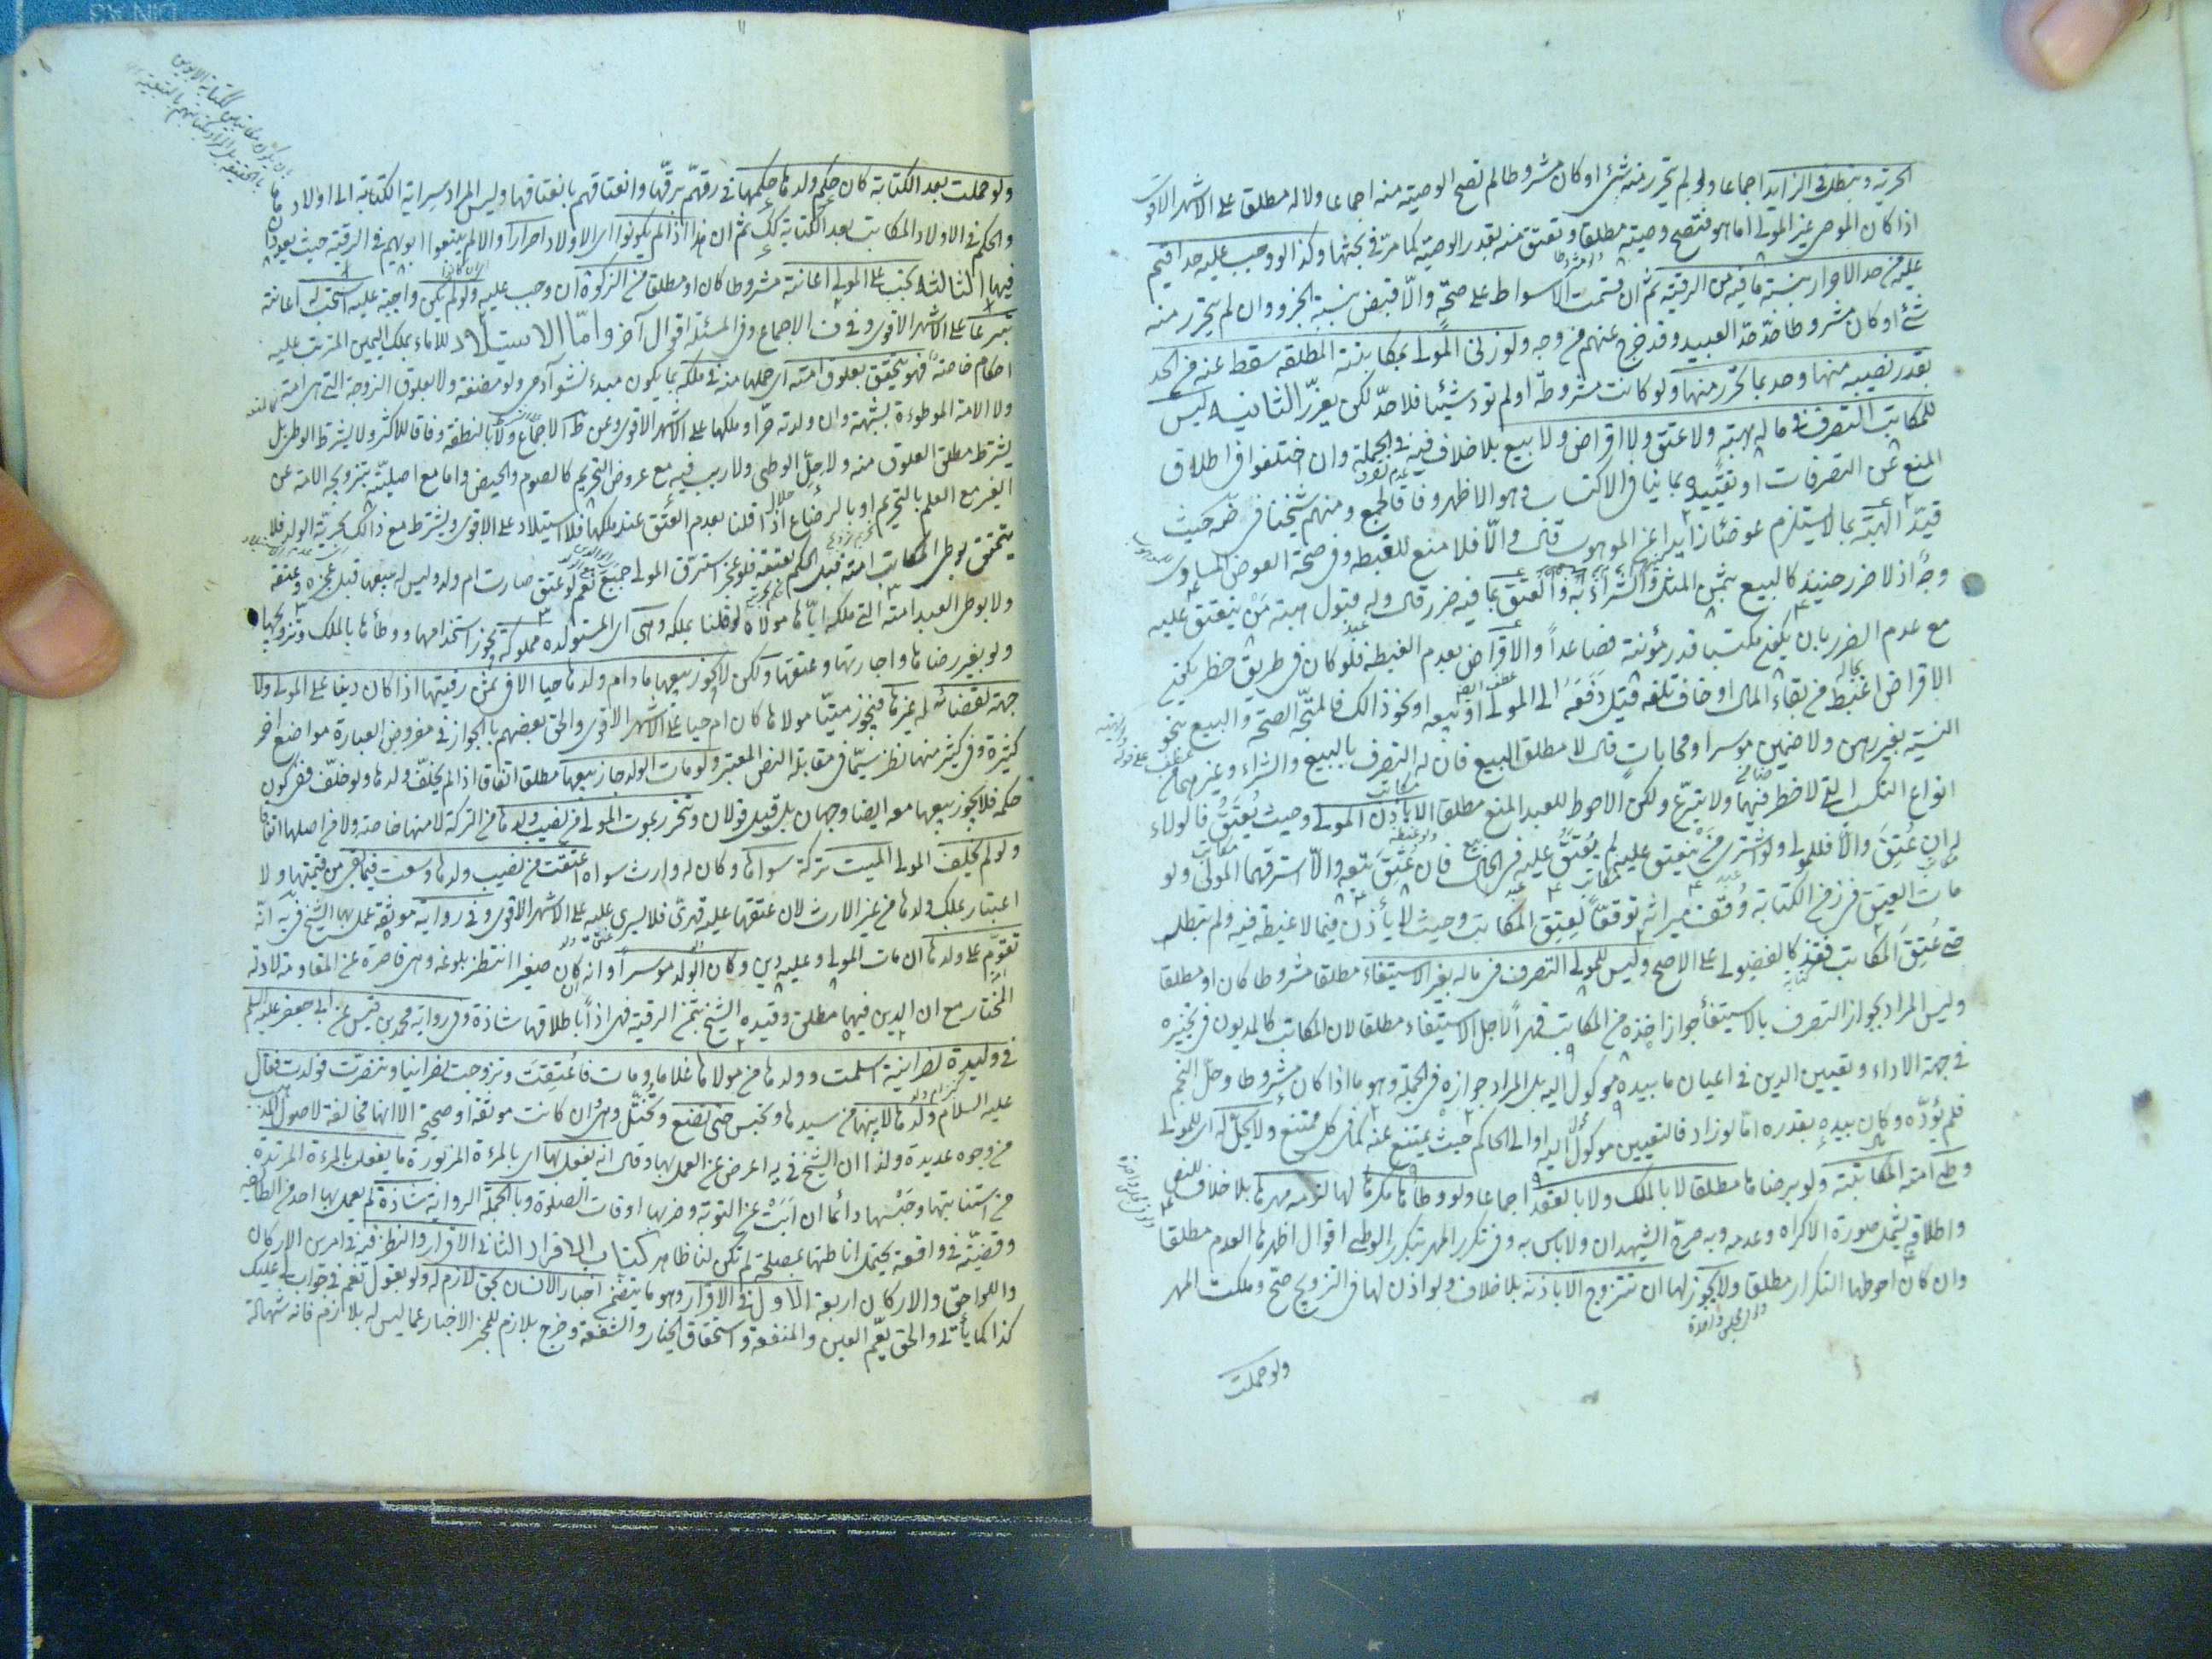 الحرية وتبطل في الزايد اجماعا ولو لم يتحرر منه شئ او كان مشروطا لم تصح الوصية منه اجماعا ولا له مطلقا على الاشهر الاقوى
اذا كان الموصى غير المولى اما هو فتصح وصيته مطلقا وتعتق منه بقدر الوصية كما مر في بحثها وكذا لو وجب عليه حد اقيم
عليه من حد الاحرار بنسبة ما فيه من الرقية ثم ان قسمت الاسواط على صحة والا قبض بنسبة الجزء وان لم يتحرر منه
شئ او كان مشروطا حد حد العبيد وقد خرج عنهم من وجه ولو زنى المولى بمكاتبته المطلقة سقط عنه من الحد
بقدر نصيبه منها وحد بما تحرر منها ولو كانت مشروطة او لم تؤد شيئا فلا حد لكن يعزر الثانية ليس
للمكاتب التصرف في ماله بهبة ولا عتق ولا اقراض ولا بيع بلا خلاف فيه في الجملة وان اختلفوا في اطلاق
المنع عن التصرفات او تقييده بما ينافى الاكتساب وهو الاظهر وفاقا لجمع ومنهم شيخنا في ضه حيث
قيد الهبة بما لا يستلزم عوضا زايدا عن الموهوب قال والا فلا منع للغبطة وفي صحة العوض المساوى
وجه اذ لا ضرر حينئذ كالبيع بثمن المثل والشراء به والعتق بما فيه ضرر قال وله قبول هبة من ينعتق عليه
مع عدم الضرر بان يكون مكتسبا قدر مؤنته فصاعدا والاقراض بعدم الغبطة فلو كان في طريق خطر يكون
الاقراض اغبط من بقاء المال او خاف تلفه قبل دفعه الى المولى او بيعه او نحو ذلك فالمتجه الصحة والبيع بنحو
النسية بغير رهن ولا ضمين موسر او محابات قال لا مطلق البيع فان له التصرف بالبيع والشراء وغيرهما من
انواع التكسب التي لا خطر فيها ولا تبرع ولكن الاحوط للعبد المنع مطلقا الا باذن المولى وحيث يعتق فالولاء
له ان عتق والا فللمولى ولو اشترى من ينعتق عليه لم يعتق عليه في الحال فان عتق تبعه والا استرقهما المولى ولو
مات العتيق في زمن الكتابة وقف ميراثه توقعا لعتق المكاتب وحيث لا يأذن فيما لا غبطة فيه ولم تبطله
حتى عتق المكاتب فنفذ كالفضولى على الاصح وليس للمولى التصرف في ماله بغير الاستيفاء مطلقا مشروطا كان او مطلقا
وليس المراد بجواز التصرف بالاستيفاء جواز اخذه من المكاتب قهرا لاجل الاستيفاء مطلقا لان المكاتب كالمديون في تخييره
في جهة الاداء وتعيين الدين في اعيان ما بيده موكول اليه بل المراد جوازه في الجملة وهو ما اذا كان مشروطا وحل النجم
فلم يؤده وكان بيده بقدره اما لو زاد فالتعيين موكول اليه او الى الحاكم حيث يمتنع عنه كما في كل ممتنع ولا يحل له اى للمولى
وطى امته المكاتبة ولو برضاها مطلقا لا بالملك ولا بالعقد اجماعا ولو وطأها مكرها لها لزمه مهرها بلا خلاف للنص
واطلاقه يشمل صورة الاكراه وعدمه وبه صرح الشهيدان ولا باس به وفي تكرر المهر بتكرر الوطى اقوال اظهرها العدم مطلقا
وان كان احوطها التكرار مطلقا ولا يجوز لها ان تتزوج الا باذنه بلا خلاف ولو اذن لها في التزويج صح وملكت المهر
ولو حملت
ولو حملت بعد الكتابة كان حكم ولدها حكمها في رقهم برقها وانعتاقهم بانعتاقها وليس المراد سراية الكتابة الى اولاد
والحكم في الاولاد المكاتب بعد الكتابة كك ثم ان هذا اذا لم يكونوا اى الاولاد احرارا والا لم يتبعوا ابويهم في الرقية حيث يعودان
فيها الثالثة يجب على المولى اعانته مشروطا كان او مطلقا من الزكوة ان وجب عليه ولو لم تكن واجبة عليه استحب له اعانته
تبرعا على الاشهر الاقوى وفي ف الاجماع وفي المسئلة اقوال آخر واما الاستيلاد للاماء بملك اليمين المترتب عليه
احكام خاصة فهو يتحقق بعلوق امته اى حملها منه في ملكه بما يكون مبدء نشو آدمى ولو مضغة ولا بعلوق الزوجة التى هى امة
ولا الامة الموطوءة بشبهة وان ولدته حرا وملكها على الاشهر الاقوى وعن ظ الاجماع ولا بالنطفة وفاقا للاكثر ولا يشترط الوطى بل
يشترط مطلق العلوق منه ولا حل الوطى ولا ريب فيه مع عروض التحريم كالصوم والحيض واما مع اصليته بتزويجه الامة من
الغير مع العلم بالتحريم او بالرضاع اذا قلنا بعدم العتق عند ملكها فلا استيلاد على الاقوى ويشترط مع ذلك حرية الولد فلا
يتحقق بوطى المكاتب امته قبل الحكم بعتقه فلو عجز استرق المولى جميع نعم لو عتق صارت ام ولد وليس له بيعها قبل عجزه وعتقه
ولا بوطى العبد امته التى ملكه اياها مولاه لو قلنا بملكه وهى اى المستولدة مملوكة يجوز استخدامها ووطأها بالملك وتزويجها
ولو بغير رضاها واجارتها وعتقها ولكن لا يجوز بيعها ما دام ولدها حيا الا في ثمن رقبتها اذا كان دينا على المولى ولا
جهة لقضائه له غيرها فيجوز ميتا مولاها كان ام حيا على الاشهر الاقوى والحق بعضهم بالجواز في مفروض العبارة مواضع اخر
كثيرة وفي كثير منها نظر سيما في مقابلة النص المعتبر ولو مات الولد جاز بيعها مطلقا اتفاقا اذا لم يخلف ولدها ولو خلف ففى كون
حكمه فلا يجوز بيعها معه ايضا وجهان بل قيل قولان وتتحرر بموت المولى من نصيب ولدها من التركة لا منها خاصة ولا من اصلها اتفاقا
ولو لم يخلف المولى الميت تركة سواها وكان له وارث سواه اعتقت من نصيب ولدها وسعت فيما بقى من قيمتها ولا
اعتبار بملك ولدها من غير الارث لان عتقها عليه قهرى فلا يسرى عليه على الاشهر الاقوى وفي رواية موثقة عمل بها الشيخ في يه انه
تقوم على ولدها ان مات المولى وعليه دين وكان الولد موسرا وانه كان صغيرا انتظر بلوغه وهى قاصرة عن المقاومة لادلة
المختار مع ان الدين فيها مطلق وقيده الشيخ بثمن الرقبة فهى اذا باطلاقها شاذة وفي رواية محمد بن قيس عن ابى جعفر عليه السلم
في وليدة نصرانية اسلمت وولدها من مولاها غلاما ومات فاعتقت وتزوجت نصرانيا وتنصرت فولدت فقال
عليه السلام ولدها لابنها من سيدها وتحبس حتى تضع وتقتل وهى وان كانت موثقة او صحيحة الا انها مخالفة لاصول المذهب
من وجوه عديدة ولذا ان الشيخ في يه اعرض عن العمل بها وقال انه يفعل بها اى بالمرءة المزبورة ما يفعل بالمرءة المرتدة
من استتابتها وحبسها دائما ان ابت عن التوبة وضربها اوقات الصلوة وبالجملة الرواية شاذة لم يعمل بها احد من الطائفة
وقضيته في واقعة يحتمل اناطتها بمصلحة لم تكن لنا ظاهر كتاب الاقرار الثاني الاقرار والنظر فيه في امرين الاركان
واللواحق والاركان اربعة الاول في الاقرار وهو ما يتضمن اخبار الانسان بحق لازم له ولو بقول نعم في جواب لى عليك
كذا كما يأتى والحق يعم العين والمنفعة واستحقاق الخيار والشفعة وخرج بلازم للمخبر الاخبار عما ليس له بلازم فانه شهادة